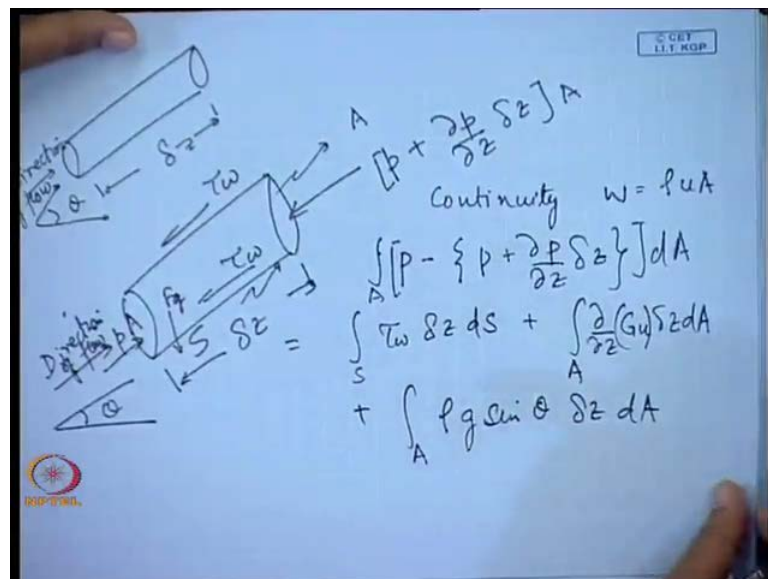 © CET
I.I.T. KGP
δz
θ
Direction
flow
τw
A
[p + ∂p/∂z δz] A
Continuity W = ρuA
τw
Fg
∫_A [p - {p + ∂p/∂z δz}] dA
Direction
of flow
pA
S
δz
= ∫_S τw δz dS + ∫_A ∂/∂z (Gu) δz dA
θ
+ ∫_A ρg sin θ δz dA
NPTEL